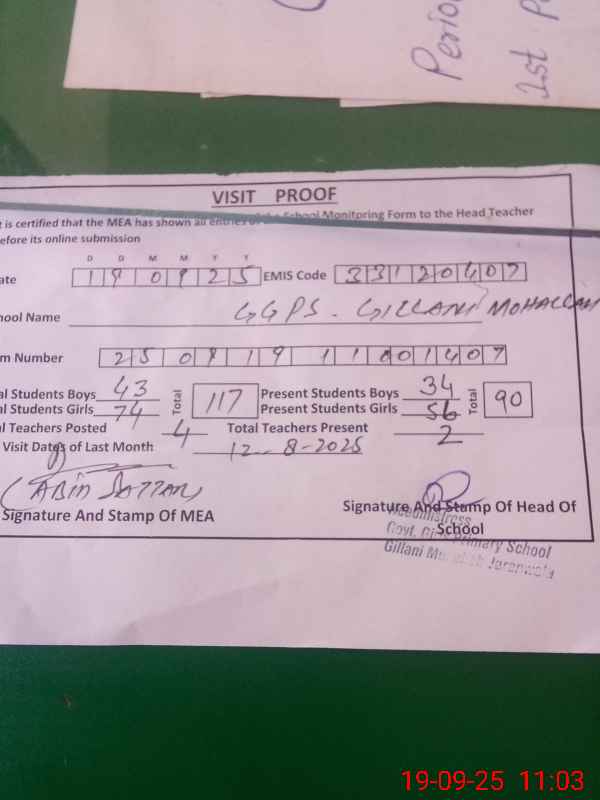 Perio
1st P
VISIT PROOF
t is certified that the MEA has shown all entries of School Monitoring Form to the Head Teacher
efore its online submission
D D M M Y Y
ate 1 9 0 9 2 5 EMIS Code 3 3 1 2 0 4 0 7
hool Name GGPS. GILLANI MOHALLAH
m Number 2 5 0 9 1 9 1 1 0 0 1 4 0 7
al Students Boys 43 Total 117 Present Students Boys 34 Total 90
al Students Girls 74 Present Students Girls 56
l Teachers Posted 4 Total Teachers Present 2
Visit Dates of Last Month 12-8-2025
(ABID SATTAR)
Signature And Stamp Of MEA Signature And Stamp Of Head Of School
Headmistress
Govt. Girls Primary School
Gillani Jaranwala
19-09-25 11:03